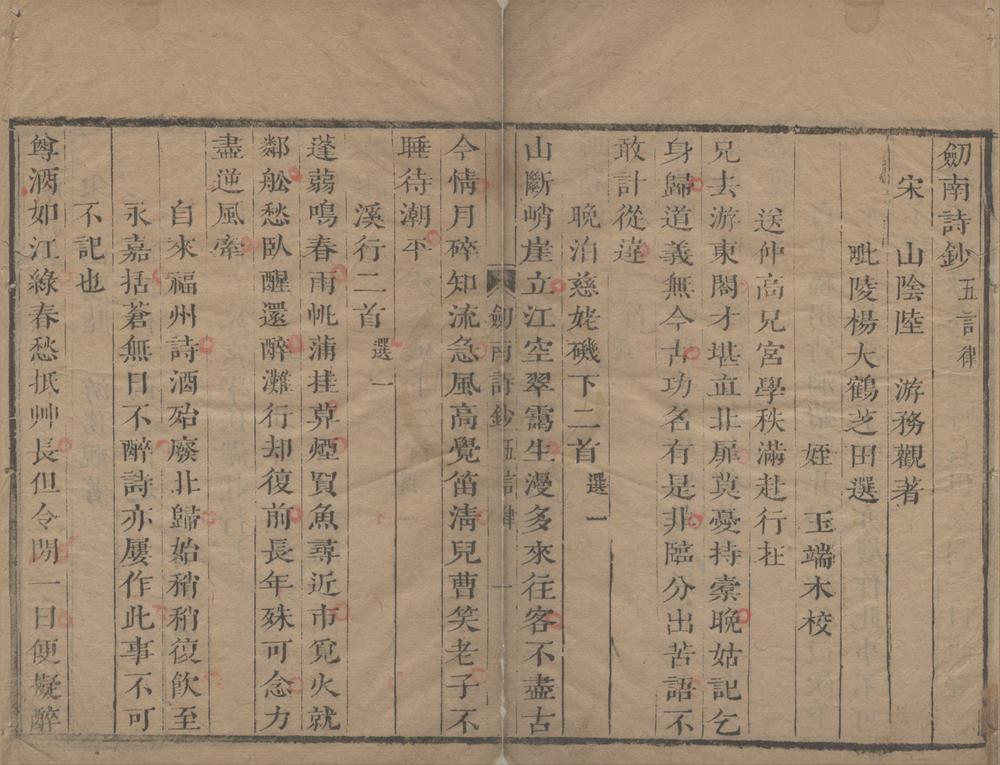 劒南詩鈔 五言律
宋 山陰陸 游務觀著
毗陵楊大鶴芝田選
姪 玉端木校
送仲高兄宮學秩滿赴行在
兄去游東閣才堪直北扉莫憂持橐晚姑記乞
身歸道義無今古功名有是非臨分出苦語不
敢計從違
晚泊慈姥磯下二首 選一
山斷峭崖立江空翠靄生漫多來往客不盡古
劒南詩鈔 五言律 一
今情月碎知流急風高覺笛淸兒曹笑老子不
睡待潮平
溪行二首 選一
蓬蒻鳴春雨帆蒲挂莫煙買魚尋近市覓火就
鄰舩愁臥醒還醉灘行却復前長年殊可念力
盡逆風牽
自來福州詩酒殆廢北歸始稍稍復飲至
永嘉括蒼無日不醉詩亦屢作此事不可
不記也
尊酒如江綠春愁抵艸長但令閒一日便擬醉